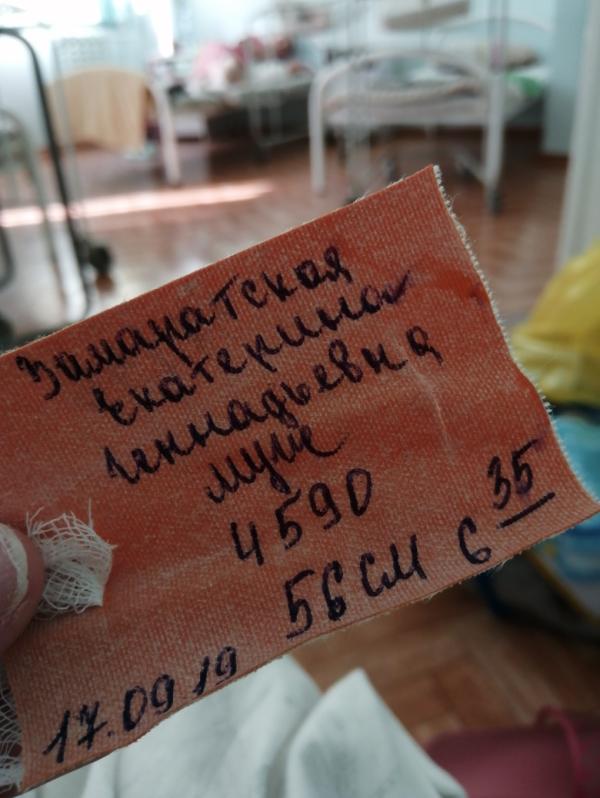 Замаратская
Екатерина
Геннадьевна
муж
4590
56 см 6 35
17.09 19